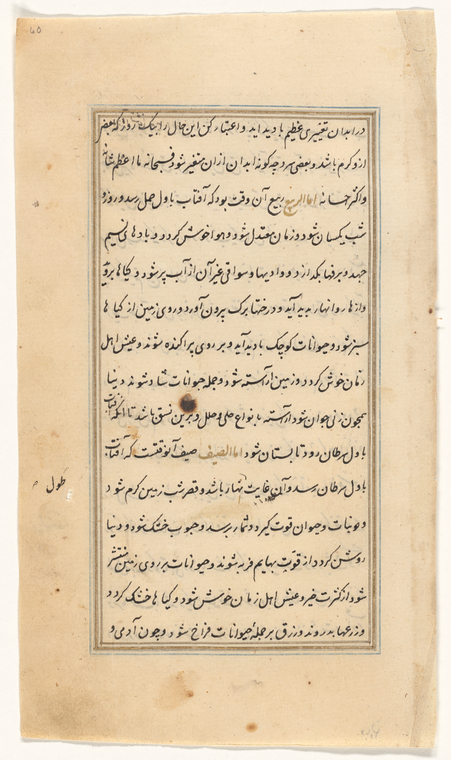 در ابدان تغییری عظیم بادید اید و اعتبار کن این حال را بیک روز که بعضی
ازو کرم باشد و بعضی سرد چه کونه ابدان ازان متغیر شود فسبحانه ما اعظم شانه
و اکثر احسانه اما الربیع ربیع آن وقت بود که آفتاب باول حمل رسد و روز و
شب یکسان شود و زمان معتدل شود و هوا خوش کردد و بادها نسیم
جهد و برفها بکدازد و وادیها و سواقی غیر آن از آب پر شود و کیاها بروید
وازهار و انهار پدید آید و درختها برک بیرون آورد و روی زمین از کیاها
سبز شود و حیوانات کوچک بادید آید و بر روی پراکنده شوند و عیش اهل
زمان خوش کردد و زمین آراسته شود و جمله حیوانات شاد شوند و دنیا
همچون زنی جوان شود آراسته بانواع حلی و حلل و برین نسق باشد تا آنکه آفتاب
باول سرطان رود تابستان شود اما الصیف صیف آنوقتست که آفتاب
باول سرطان رسد و آن غایت طول نهار باشد و قصر شب زمین کرم شود
و نبات و حیوان قوت کیرد و ثمار برسد و حبوب خشک شود و دنیا
روشن کردد از قوت بهایم فربه شوند و حیوانات بر روی زمین منتشر
شود از کثرت خیر و عیش اهل زمان خوش شود و کیاها خشک کردد
و زرعها بدروند و رزق بر جمله حیوانات فراخ شود و چون آدمی و
طول